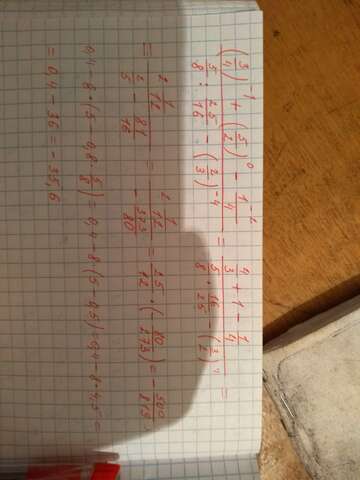 ((3/4)^-1 + (5/2)^0 - 1/4^-2) / (5/8 : 25/16 - (2/3)^-4) = (4/3 + 1 - 1/4) / (5/8 · 16/25 - (3/2)^4) =
= 2 1/12 / (2/5 - 81/16) = 2 1/12 / (- 373/80) = 25/12 · (- 80/273) = - 500/819
0,4 - 8 · (5 - 0,8 · 5/8) = 0,4 - 8(5 - 0,5) = 0,4 - 8 · 4,5 =
= 0,4 - 36 = - 35,6